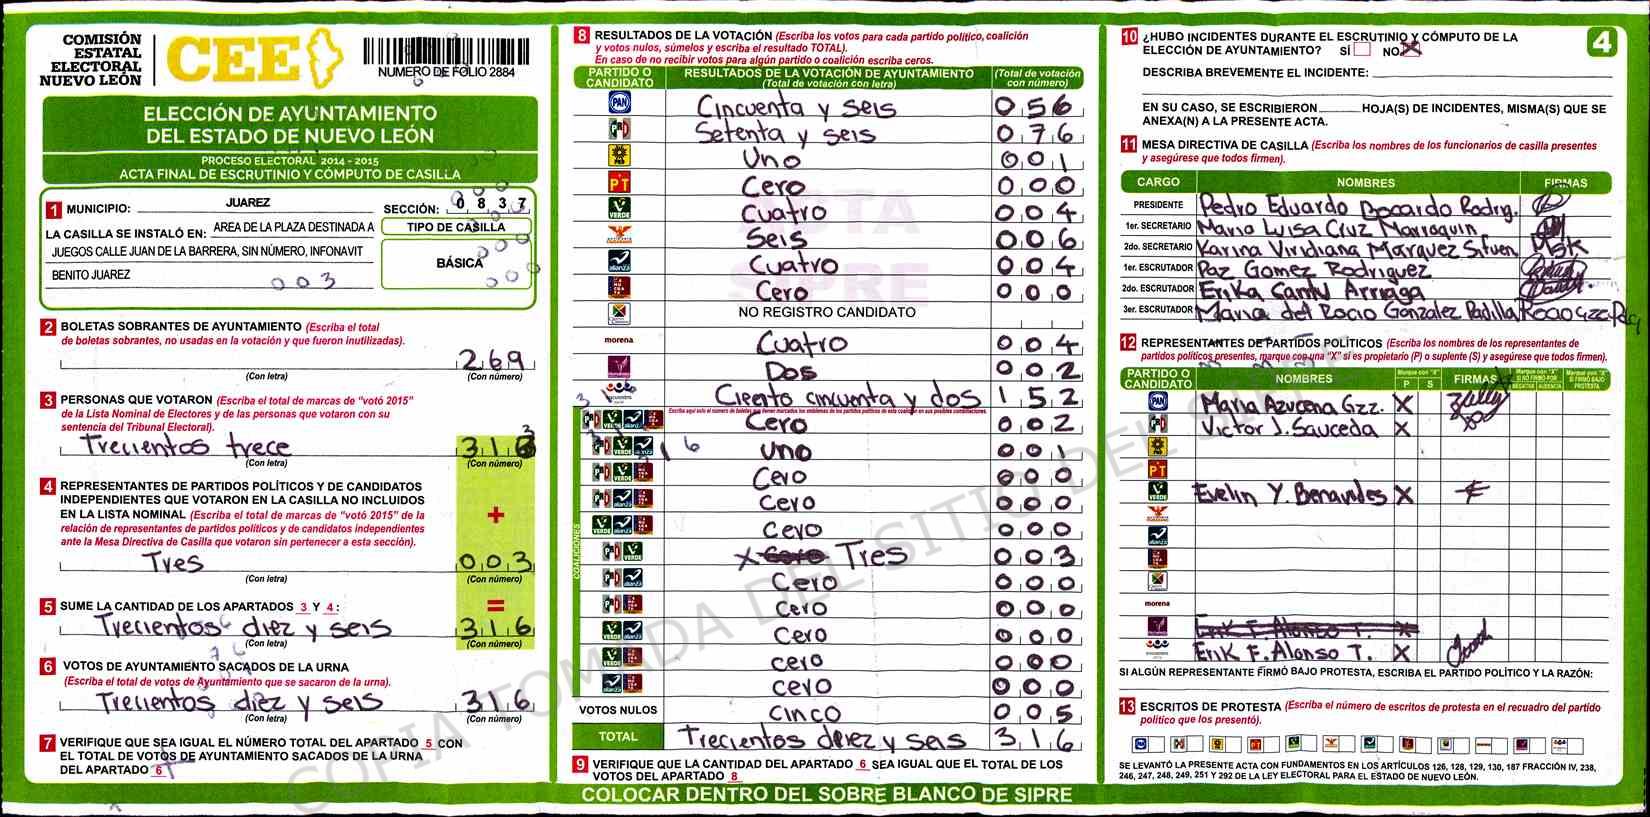 COMISIÓN
ESTATAL
ELECTORAL
NUEVO LEÓN
CEE
NUMERO DE FOLIO 2884
ELECCIÓN DE AYUNTAMIENTO
DEL ESTADO DE NUEVO LEÓN
PROCESO ELECTORAL 2014 - 2015
ACTA FINAL DE ESCRUTINIO Y CÓMPUTO DE CASILLA
1 MUNICIPIO: JUAREZ SECCIÓN: 0 8 3 7
LA CASILLA SE INSTALÓ EN: AREA DE LA PLAZA DESTINADA A
JUEGOS CALLE JUAN DE LA BARRERA, SIN NÚMERO, INFONAVIT
BENITO JUAREZ
TIPO DE CASILLA
BÁSICA
0 0 3
2 BOLETAS SOBRANTES DE AYUNTAMIENTO (Escriba el total
de boletas sobrantes, no usadas en la votación y que fueron inutilizadas).
269
(Con letra) (Con número)
3 PERSONAS QUE VOTARON (Escriba el total de marcas de “votó 2015”
de la Lista Nominal de Electores y de las personas que votaron con su
sentencia del Tribunal Electoral).
Trecientos trece 313
(Con letra) (Con número)
4 REPRESENTANTES DE PARTIDOS POLÍTICOS Y DE CANDIDATOS
INDEPENDIENTES QUE VOTARON EN LA CASILLA NO INCLUIDOS
EN LA LISTA NOMINAL (Escriba el total de marcas de “votó 2015” de la
relación de representantes de partidos políticos y de candidatos independientes
ante la Mesa Directiva de Casilla que votaron sin pertenecer a esta sección).
+
Tres 003
(Con letra) (Con número)
5 SUME LA CANTIDAD DE LOS APARTADOS 3 Y 4 : =
Trecientos diez y seis 316
(Con letra) (Con número)
6 VOTOS DE AYUNTAMIENTO SACADOS DE LA URNA
(Escriba el total de votos de Ayuntamiento que se sacaron de la urna).
Trecientos diez y seis 316
(Con letra) (Con número)
7 VERIFIQUE QUE SEA IGUAL EL NÚMERO TOTAL DEL APARTADO 5 CON
EL TOTAL DE VOTOS DE AYUNTAMIENTO SACADOS DE LA URNA
DEL APARTADO 6
8 RESULTADOS DE LA VOTACIÓN (Escriba los votos para cada partido político, coalición
y votos nulos, súmelos y escriba el resultado TOTAL).
En caso de no recibir votos para algún partido o coalición escriba ceros.
PARTIDO O CANDIDATO RESULTADOS DE LA VOTACIÓN DE AYUNTAMIENTO (Total de votación con letra) (Total de votación con número)
PAN Cincuenta y seis 056
PRD Setenta y seis 076
PRD Uno 001
PT Cero 000
VERDE Cuatro 004
Seis 006
alianza Cuatro 004
Cero 000
NO REGISTRO CANDIDATO
morena Cuatro 004
Dos 002
encuentro Ciento cincuenta y dos 152
Escriba aquí solo el número de boletas que tienen marcados los emblemas de los partidos políticos de esta coalición en sus posibles combinaciones.
COALICIONES
Cero 002
uno 001
Cero 000
Cero 000
Cero 000
X Cero Tres 003
Cero 000
Cero 000
Cero 000
cero 000
cero 000
VOTOS NULOS Cinco 005
TOTAL Trecientos diez y seis 316
9 VERIFIQUE QUE LA CANTIDAD DEL APARTADO 6 SEA IGUAL QUE EL TOTAL DE LOS
VOTOS DEL APARTADO 8
COLOCAR DENTRO DEL SOBRE BLANCO DE SIPRE
ACTA
SIPRE
COPIA TOMADA DEL SITIO DEL SIPRE
10 ¿HUBO INCIDENTES DURANTE EL ESCRUTINIO Y CÓMPUTO DE LA
ELECCIÓN DE AYUNTAMIENTO? SÍ NO X
4
DESCRIBA BREVEMENTE EL INCIDENTE:
EN SU CASO, SE ESCRIBIERON HOJA(S) DE INCIDENTES, MISMA(S) QUE SE
ANEXA(N) A LA PRESENTE ACTA.
11 MESA DIRECTIVA DE CASILLA (Escriba los nombres de los funcionarios de casilla presentes
y asegúrese que todos firmen).
CARGO NOMBRES FIRMAS
PRESIDENTE Pedro Eduardo Bocardo Rodrig.
1er. SECRETARIO Maria Luisa Cruz Marroquin
2do. SECRETARIO Karina Viridiana Marquez Sifuen
1er. ESCRUTADOR Paz Gomez Rodriguez
2do. ESCRUTADOR Erika Cantu Arriaga
3er. ESCRUTADOR Maria del Rocio Gonzalez Padilla
12 REPRESENTANTES DE PARTIDOS POLÍTICOS (Escriba los nombres de los representantes de
partidos políticos presentes, marque con una “X” si es propietario (P) o suplente (S) y asegúrese que todos firmen).
PARTIDO O CANDIDATO NOMBRES Marque con "X" P S FIRMAS Marque con "X" SI NO FIRMÓ POR NEGATIVA AUSENCIA Marque con "X" SI FIRMÓ BAJO PROTESTA
PAN Maria Azucena Gzz. X
Victor J. Sauceda X
PRD
PT
VERDE Evelin Y. Benavides X
alianza
morena
Erik F. Alonso T. X
Erik F. Alonso T. X
SI ALGÚN REPRESENTANTE FIRMÓ BAJO PROTESTA, ESCRIBA EL PARTIDO POLÍTICO Y LA RAZÓN:
13 ESCRITOS DE PROTESTA (Escriba el número de escritos de protesta en el recuadro del partido
político que los presentó).
SE LEVANTÓ LA PRESENTE ACTA CON FUNDAMENTOS EN LOS ARTÍCULOS 126, 128, 129, 130, 187 FRACCIÓN IV, 238,
246, 247, 248, 249, 251 Y 292 DE LA LEY ELECTORAL PARA EL ESTADO DE NUEVO LEÓN.